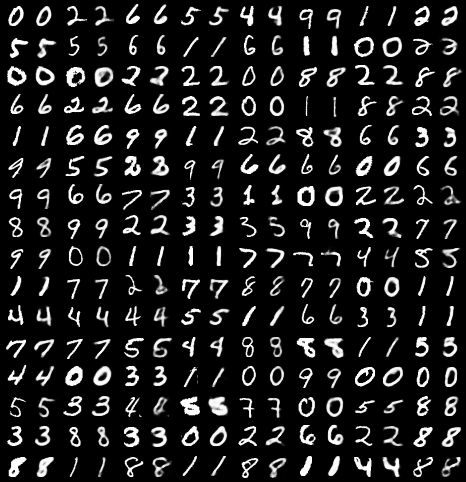 0 0 2 2 6 6 5 5 4 4 9 9 1 1 2 2
5 5 5 5 6 6 1 1 6 6 1 1 0 0 2 3
0 0 0 0 2 2 2 2 0 0 8 8 2 2 8 8
6 6 2 2 6 6 2 2 0 0 1 1 8 8 2 2
1 1 6 6 9 9 1 1 2 2 8 8 6 6 3 3
9 9 5 5 2 2 9 9 6 6 6 6 0 0 6 6
9 9 6 6 7 7 3 3 1 1 0 0 2 2 2 2
8 8 9 9 2 2 3 3 3 5 9 9 2 2 7 7
9 9 0 0 1 1 1 1 7 7 7 7 4 4 5 5
1 1 7 7 2 2 7 7 8 8 7 7 0 0 1 1
4 4 4 4 4 4 5 5 1 1 6 6 3 3 1 1
7 7 7 7 5 5 4 4 8 8 8 8 1 1 5 5
4 4 0 0 3 3 1 1 0 0 9 9 0 0 0 0
5 5 3 3 4 8 8 7 7 0 0 5 5 8 8
3 3 8 8 3 3 0 0 2 2 6 6 2 2 8 8
8 8 1 1 8 8 1 1 8 8 1 1 4 4 8 8